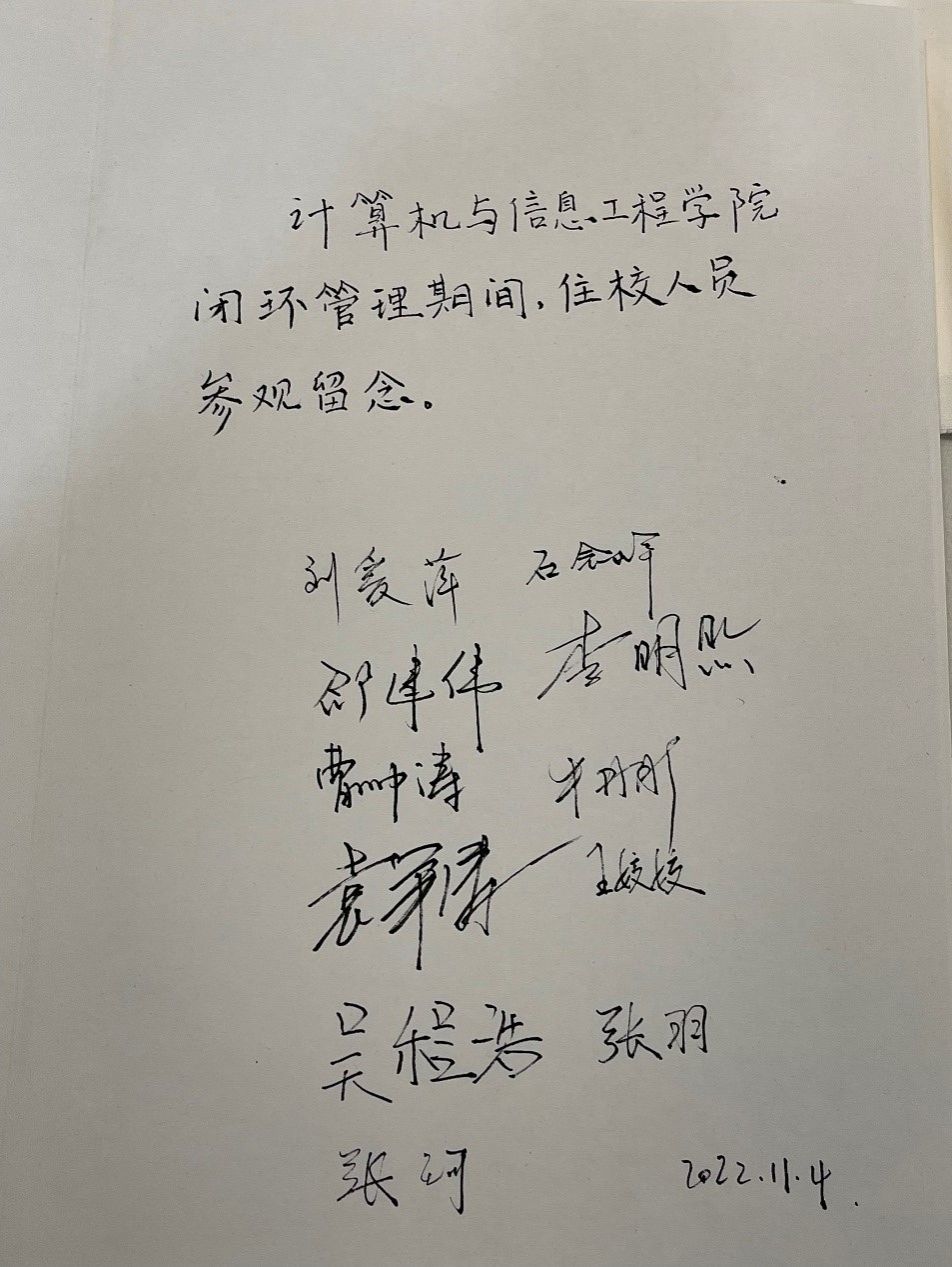 计算机与信息工程学院
闭环管理期间,住校人员
参观留念。
刘爱萍 石
邵建伟 李明照
曹帅涛 朱彤彤
袁军涛 王姣姣
吴程浩 张羽
张珂 2022.11.4.